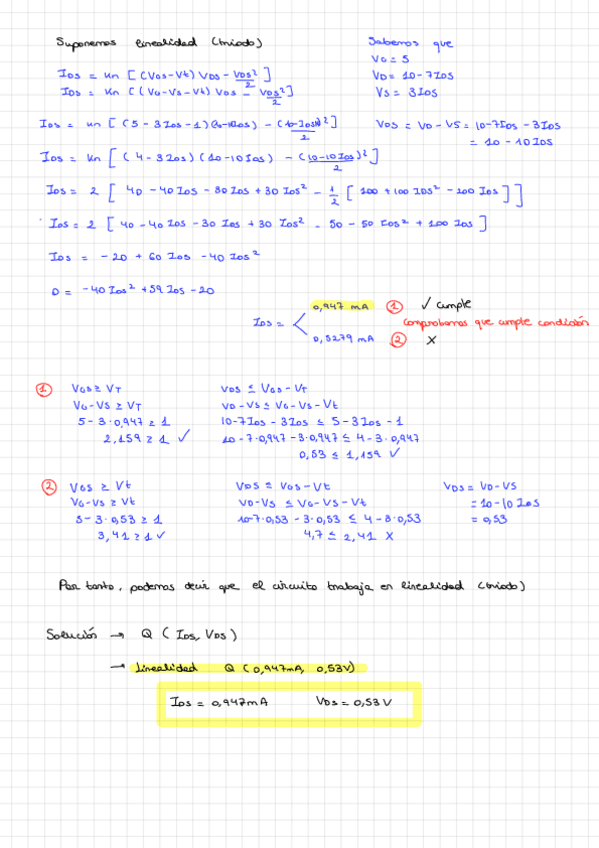 Suponemos linealidad (triodo)
Sabemos que
VG = 5
VD = 10-7IDS
VS = 3IDS
IDS = Kn [(VGS-Vt) VDS - VDS²/2]
IDS = Kn [(VG-VS-Vt) VDS - VDS²/2]
IDS = Kn [(5 - 3IDS - 1)(10-10IDS) - (10-10IDS)²/2]
VDS = VD - VS = 10-7IDS - 3IDS
= 10 - 10IDS
IDS = Kn [(4-3IDS)(10-10IDS) - (10-10IDS)²/2]
IDS = 2 [40 - 40IDS - 30IDS + 30IDS² - 1/2 [100 + 100 IDS² - 200 IDS]]
IDS = 2 [40 - 40 IDS - 30 IDS + 30 IDS² - 50 - 50 IDS² + 100 IDS]
IDS = -20 + 60 IDS - 40 IDS²
0 = -40IDS² + 59IDS - 20
IDS =
0,947 mA ① ✓ cumple
Comprobamos que cumple condición
0,5279 mA ② X
① VGS ≥ VT
VG - VS ≥ VT
5 - 3·0,947 ≥ 1
2,159 ≥ 1 ✓
VDS ≤ VGS - VT
VD - VS ≤ VG - VS - Vt
10-7IDS - 3IDS ≤ 5 - 3IDS - 1
10 - 7·0,947 - 3·0,947 ≤ 4 - 3·0,947
0,53 ≤ 1,159 ✓
② VGS ≥ Vt
VG - VS ≥ Vt
5 - 3·0,53 ≥ 1
3,41 ≥ 1 ✓
VDS ≤ VGS - Vt
VD - VS ≤ VG - VS - Vt
10-7·0,53 - 3·0,53 ≤ 4 - 3·0,53
4,7 ≤ 2,41 X
VDS = VD - VS
= 10 - 10 IDS
= 0,53
Por tanto, podemos decir que el circuito trabaja en linealidad (triodo)
Solución → Q (IDS, VDS)
→ Linealidad Q (0,947mA, 0,53V)
IDS = 0,947mA VDS = 0,53 V